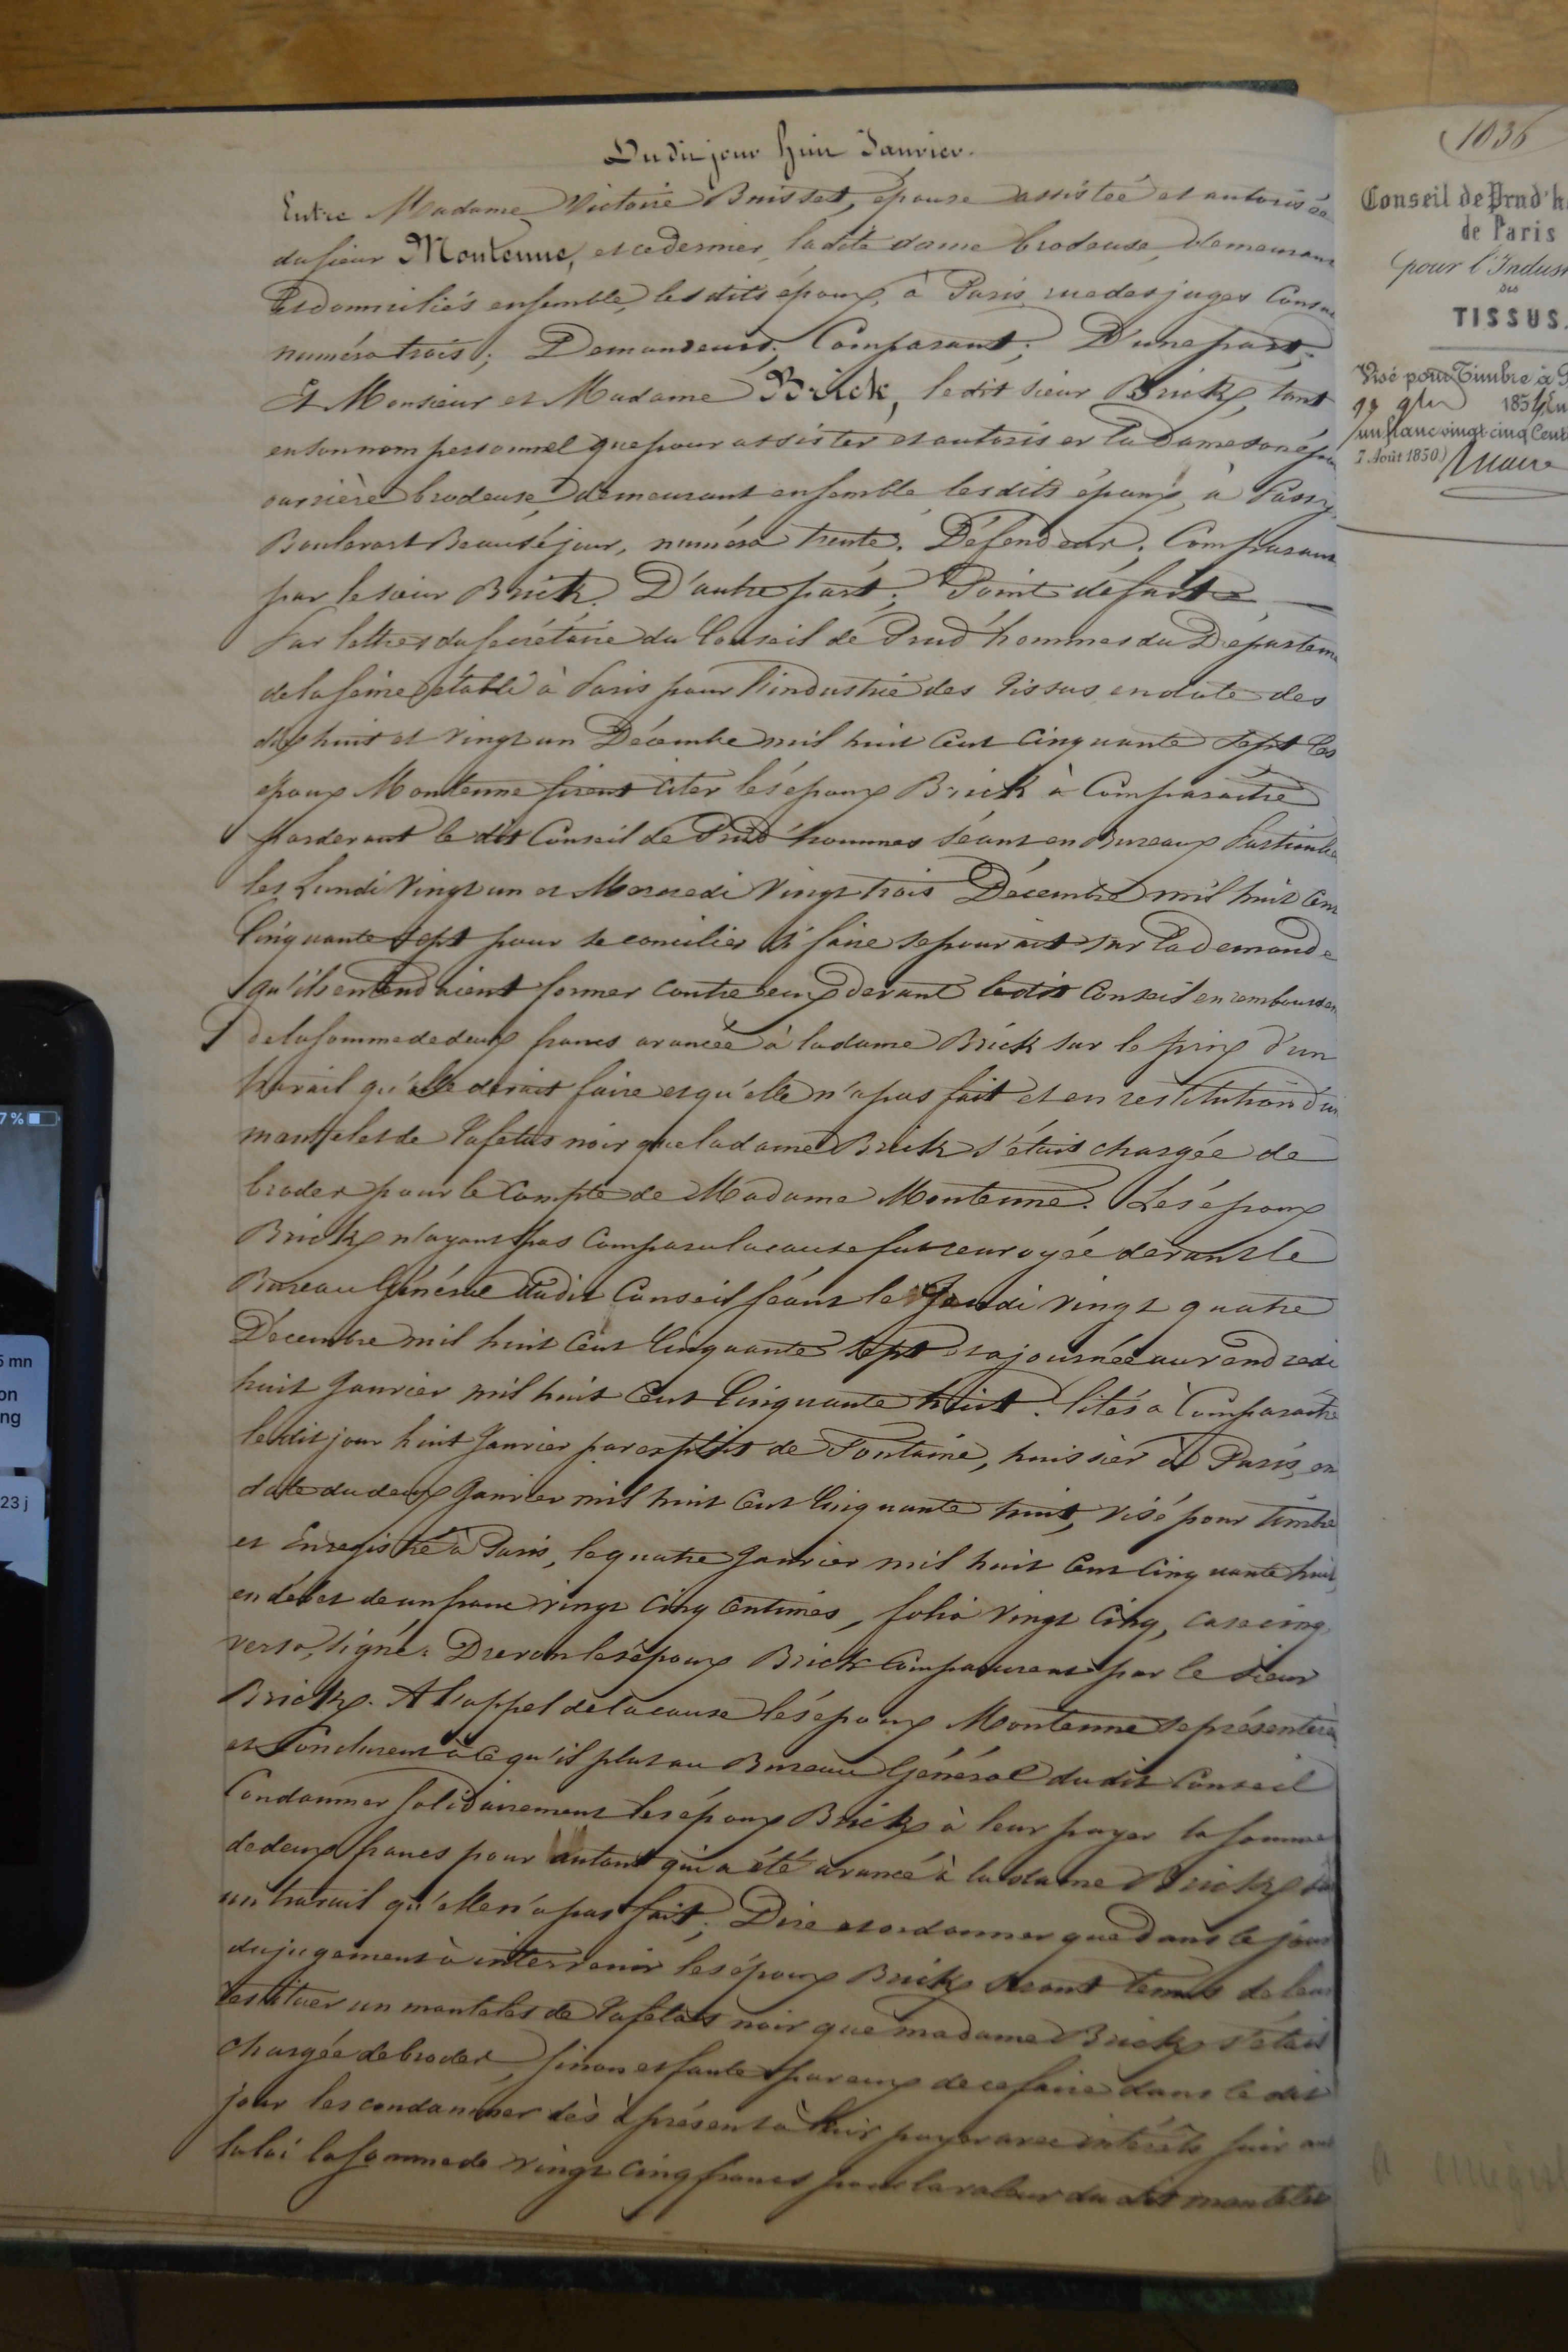 Dudit jour huit Janvier.
Entre Madame Victoire Buisset, épouse assistée et autorisée
du sieur Montenne, et ce dernier, ladite dame brodeuse, demeurant
et domiciliés ensemble, lesdits époux, à Paris, rue des juges Consu
numéro trois; Demandeurs; Comparant; D'une part;
Et Monsieur et Madame Brick, le dit sieur Brick, tant
en son nom personnel que pour assister et autoriser la Dame son épou
ouvrière brodeuse, demeurant ensemble, lesdits époux, à Passy,
Boulevart Beauséjour, numéro trente; Défendeur; Comparant
par le sieur Brick; D'autre part; Point de fait
Par lettres du secrétaire du Conseil de Prud'hommes du Départeme
de la Seine établi à Paris pour l'industrie des Tissus en date des
dix huit et vingt un Décembre mil huit Cent Cinquante sept les
époux Montenne firent citer les époux Brick à Comparaître
pardevant le dit Conseil de Prud'hommes séant en Bureaux Particulie
les Lundi Vingt un et Mercredi Vingt trois Décembre mil huit Cent
Cinquante sept pour se concilier si faire se pouvait sur la demande
qu'ils entendaient former contre eux devant ledit Conseil en rembourse
de la somme de deux francs avancée à la dame Brick sur le prix d'un
travail qu'elle devait faire et qu'elle n'a pas fait et en restitution d'un
mantelet de Tafetas noir que la dame Brick s'était chargée de
broder pour le Compte de Madame Montenne. Les époux
Brick n'ayant pas Comparu la cause fut renvoyée devant le
Bureau Général dudit Conseil séant le Jeudi vingt quatre
Décembre mil huit Cent Cinquante sept et ajournée au vendredi
huit Janvier mil huit Cent Cinquante huit. Cités à Comparaître
ledit jour huit Janvier par exploit de Fontaine, huissier à Paris, en
date du deux Janvier mil huit Cent Cinquante huit, visé pour timbre
et Enregistré à Paris, le quatre Janvier mil huit Cent Cinquante huit,
en débet de un franc vingt Cinq Centimes, folio Vingt Cinq, case cinq,
verso, signé: Drevon les époux Brick Comparurent par le sieur
Brick. A l'appel de la cause les époux Montenne se présentère
et Conclurent à ce qu'il plut au Bureau Général dudit Conseil
Condamner solidairement les époux Brick à leur payer la somme
de deux francs pour autant qui a été avancé à la dame Brick sur
un travail qu'elle n'a pas fait; Dire et ordonner que dans le jour
du jugement à intervenir les époux Brick seront tenus de leur
restituer un mantelet de Tafetas noir que madame Brick s'était
chargée de broder, sinon et faute par eux de ce faire dans le dit
jour les condamner dès à présent à leur payer avec intérêts suivant
la loi la somme de vingt cinq francs pour la valeur du dit mantelet
1036
Conseil de Prud'h
de Paris
pour l'Indus
des
TISSUS.
Visé pour Timbre à
185
un franc vingt cinq Cent
7 Août 1850)
7%
5 mn
on
ng
23 j